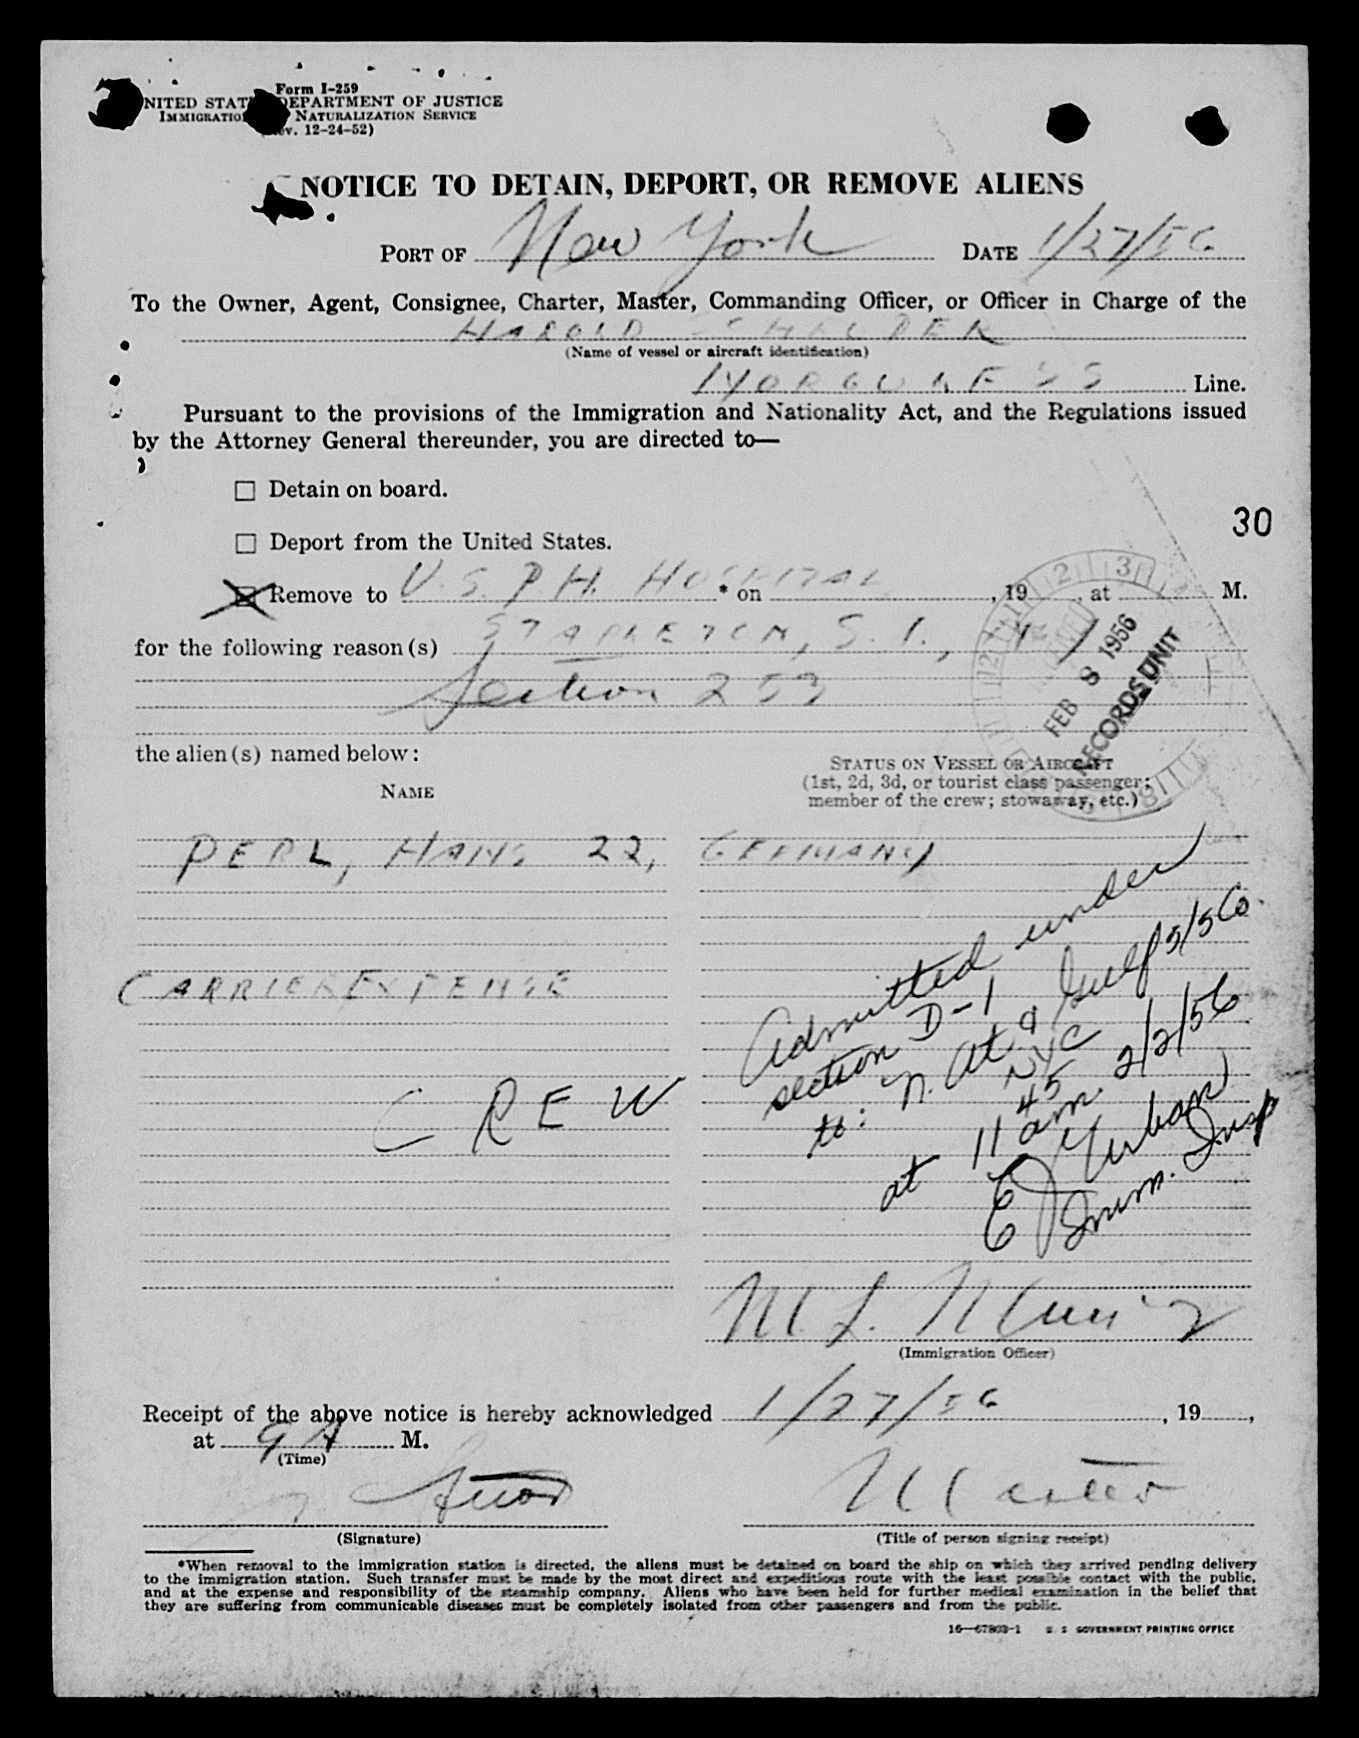 Form I-259
UNITED STATES DEPARTMENT OF JUSTICE
IMMIGRATION NATURALIZATION SERVICE
(Rev. 12-24-52)
NOTICE TO DETAIN, DEPORT, OR REMOVE ALIENS
PORT OF New York DATE 1/27/56
To the Owner, Agent, Consignee, Charter, Master, Commanding Officer, or Officer in Charge of the
HAROLD
(Name of vessel or aircraft identification)
Line.
Pursuant to the provisions of the Immigration and Nationality Act, and the Regulations issued
by the Attorney General thereunder, you are directed to—
Detain on board.
30
Deport from the United States.
Remove to U.S.P.H. HOSPITAL * on , 19 , at M.
for the following reason(s) STAPLETON, S. I., NY
Section 253
FEB 8 1956
RECORDS UNIT
the alien(s) named below:
STATUS ON VESSEL OR AIRCRAFT
(1st, 2d, 3d, or tourist class passenger;
member of the crew; stowaway, etc.)
NAME
PERL, HANS 22, GERMANY
CARRIER EXPENSE
CREW
Admitted under
section D-1
to: N. Atl & Gulf S/S Co.
NYC
at 11 45 am. 2/2/56
E J Urban
Imm. Insp
M. L.
(Immigration Officer)
Receipt of the above notice is hereby acknowledged 1/27/56, 19 ,
at 9 A M.
(Time)
(Signature)
(Title of person signing receipt)
*When removal to the immigration station is directed, the aliens must be detained on board the ship on which they arrived pending delivery
to the immigration station. Such transfer must be made by the most direct and expeditious route with the least possible contact with the public,
and at the expense and responsibility of the steamship company. Aliens who have been held for further medical examination in the belief that
they are suffering from communicable diseases must be completely isolated from other passengers and from the public.
16—67803-1 U. S. GOVERNMENT PRINTING OFFICE